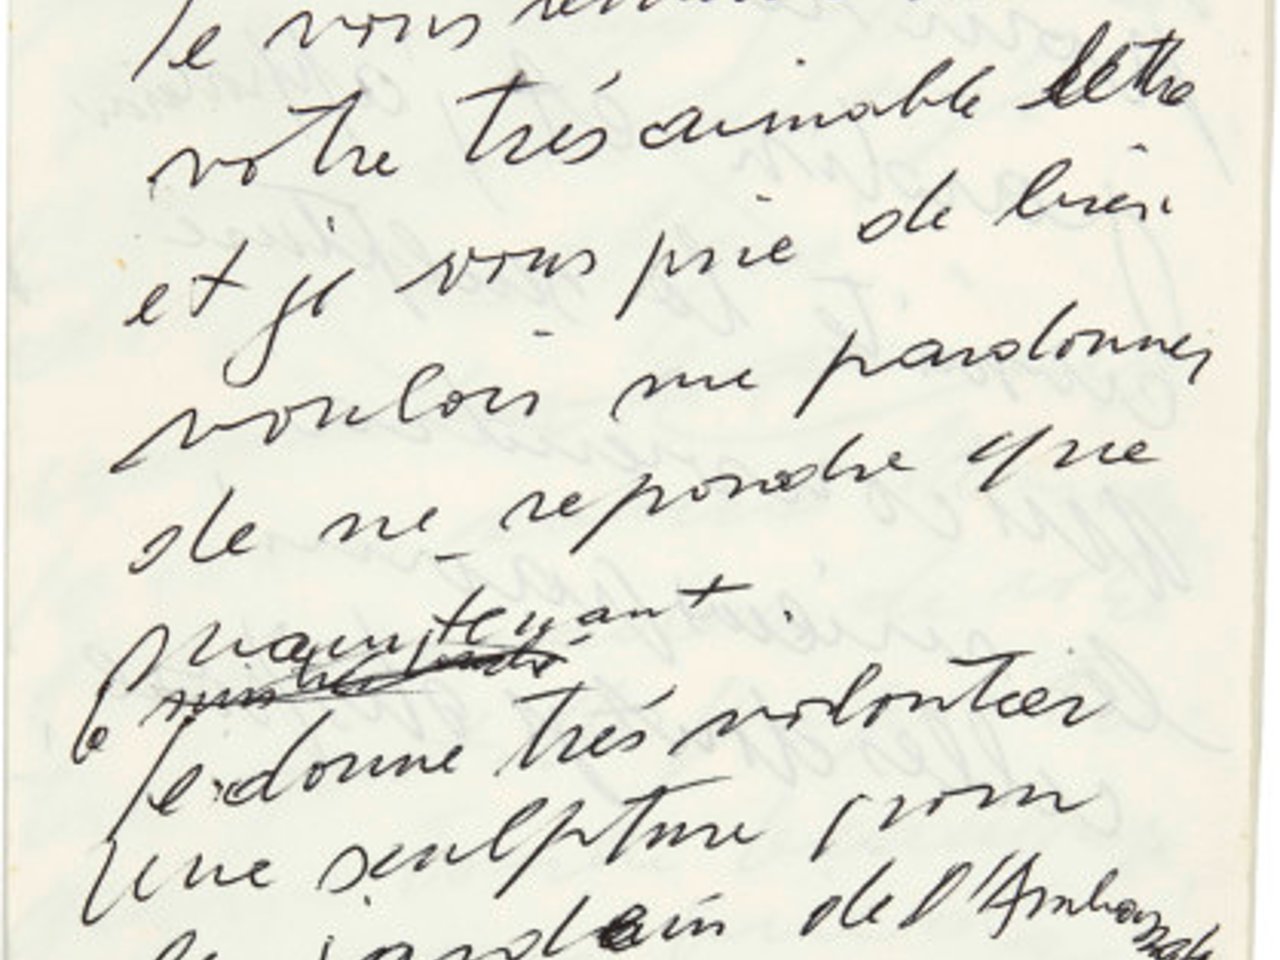 Je vous
votre trés aimable lettre
et je vous prie de bien
vouloir me pardonner
de ne repondre que
maintenant.
Je donne trés volontier
une sculpture pour
le jardain de l'Ambassade